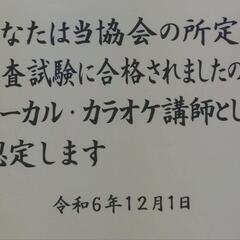 なたは当協会の所定
査試験に合格されましたの
ーカル・カラオケ講師とし
認定します
令和6年12月1日